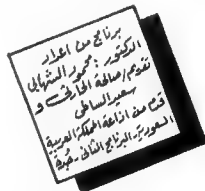 برنامج من اعداد
الدكتور: محمود الشهابي
تقديم/ صالحة الحارثي و
سعيد الساطي
قدم من اذاعة المملكة العربية
السعودية - البرنامج الثاني - جدة